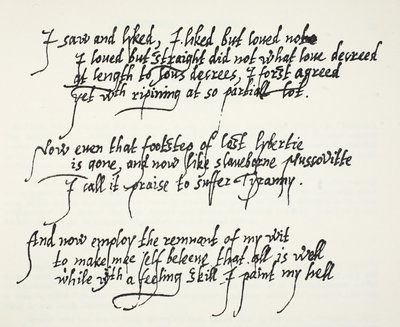 I saw and liked, I liked but loued not
I loued but straight did not what loue decreed
at length to loues decrees, I forst agreed
yet with ripining at so partiall lot.
Now euen that footstep of lost lybertie
is gone, and now like slaueborne Muscovitte
I call it praise to suffer Tyranny.
And now employ the remnant of my wit
to make mee self beleeue that all is well
while wth a feeling skill I paint my hell